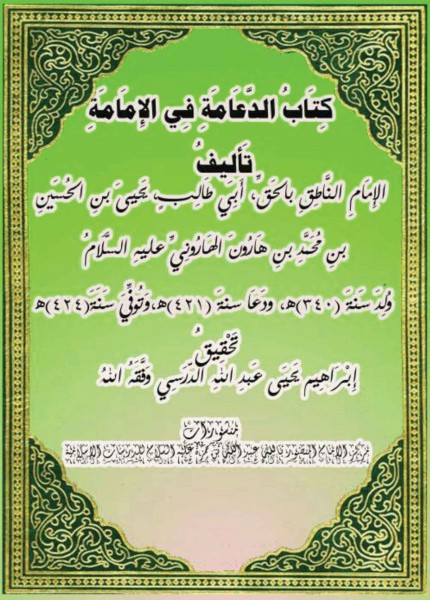 كِتَابُ الدَّعَامَةِ فِي الإِمَامَةِ
تَأْلِيفُ
الإِمَامِ النَّاطِقِ بِالحَقِّ، أَبِي طَالِبٍ، يَحْيَى بنِ الحُسَيْنِ
بنِ مُحَمَّدِ بنِ هَارُونَ الهَارُونِيِّ عَلَيهِ السَّلَامُ
وُلِدَ سَنَةَ (٣٤٠)هـ، وَدَعَا سَنَةَ (٤٢١)هـ، وَتُوُفِّيَ سَنَةَ (٤٢٤)هـ
تَحْقِيقُ
إِبْرَاهِيم يَحْيَى عَبدِ اللهِ الدَّرْسِي وَفَّقَهُ اللهُ
منشورات
مركز الإمام المنصور بالله عبد الله بن حمزة عليه السلام للدراسات الإسلامية